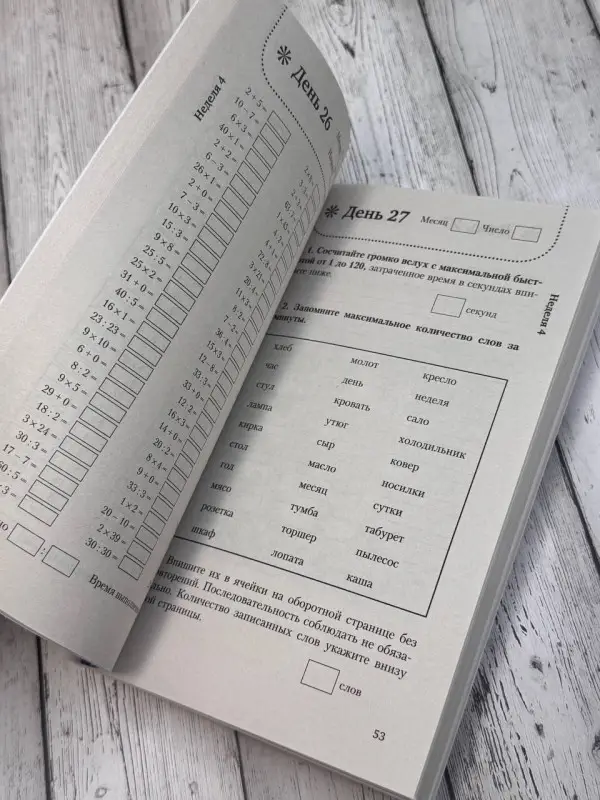 День 26
Неделя 4
2+5=
10−7=
6×3=
40×1=
2+2=
6−3=
26×1=
2+0=
7−3=
10×3=
15:3=
9×8=
25:5=
25×2=
31+0=
40:5=
16×1=
23:23=
9×10=
6+0=
8:2=
9×5=
29+0=
18:2=
3×24=
30:3=
17−7=
12:2=
16×3=
14+0=
20:2=
8×4=
9+0=
33:3=
1×2=
20−10=
2×39=
30:30=
День 27
Месяц Число
Неделя 4
1. Сосчитайте громко вслух с максимальной быст-
от 1 до 120, затраченное время в секундах впи-
ниже.
секунд
2. Запомните максимальное количество слов за
минуты.
хлеб молот кресло
час день неделя
стул кровать сало
лампа утюг холодильник
кирка сыр ковер
стол масло носилки
год месяц сутки
мясо тумба табурет
розетка торшер пылесос
шкаф лопата каша
Впишите их в ячейки на оборотной странице без
Последовательность соблюдать не обяза-
Количество записанных слов укажите внизу
страницы.
слов
53